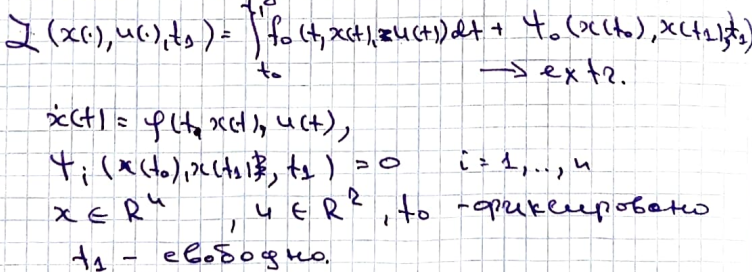 I(x(·), u(·), t₁) = ∫_{t₀}^{t₁} f₀(t, x(t), u(t)) dt + ψ₀(x(t₀), x(t₁), t₁)
→ extr.
ẋ(t) = φ(t, x(t), u(t)),
ψᵢ(x(t₀), x(t₁), t₁) = 0 i = 1, .., n
x ∈ Rⁿ, u ∈ R², t₀ - фиксировано
t₁ - свободно.